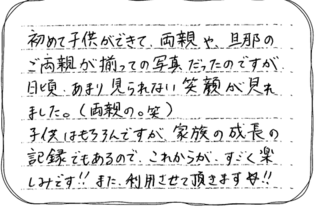 初めて子供ができて、両親や、旦那の
ご両親が揃っての写真だったのですが、
日頃、あまり見られない笑顔が見れ
ました。(両親の。笑)
子供はもちろんですが、家族の成長の
記録でもあるので、これからが、すごく楽
しみです!! また、利用させて頂きます!!